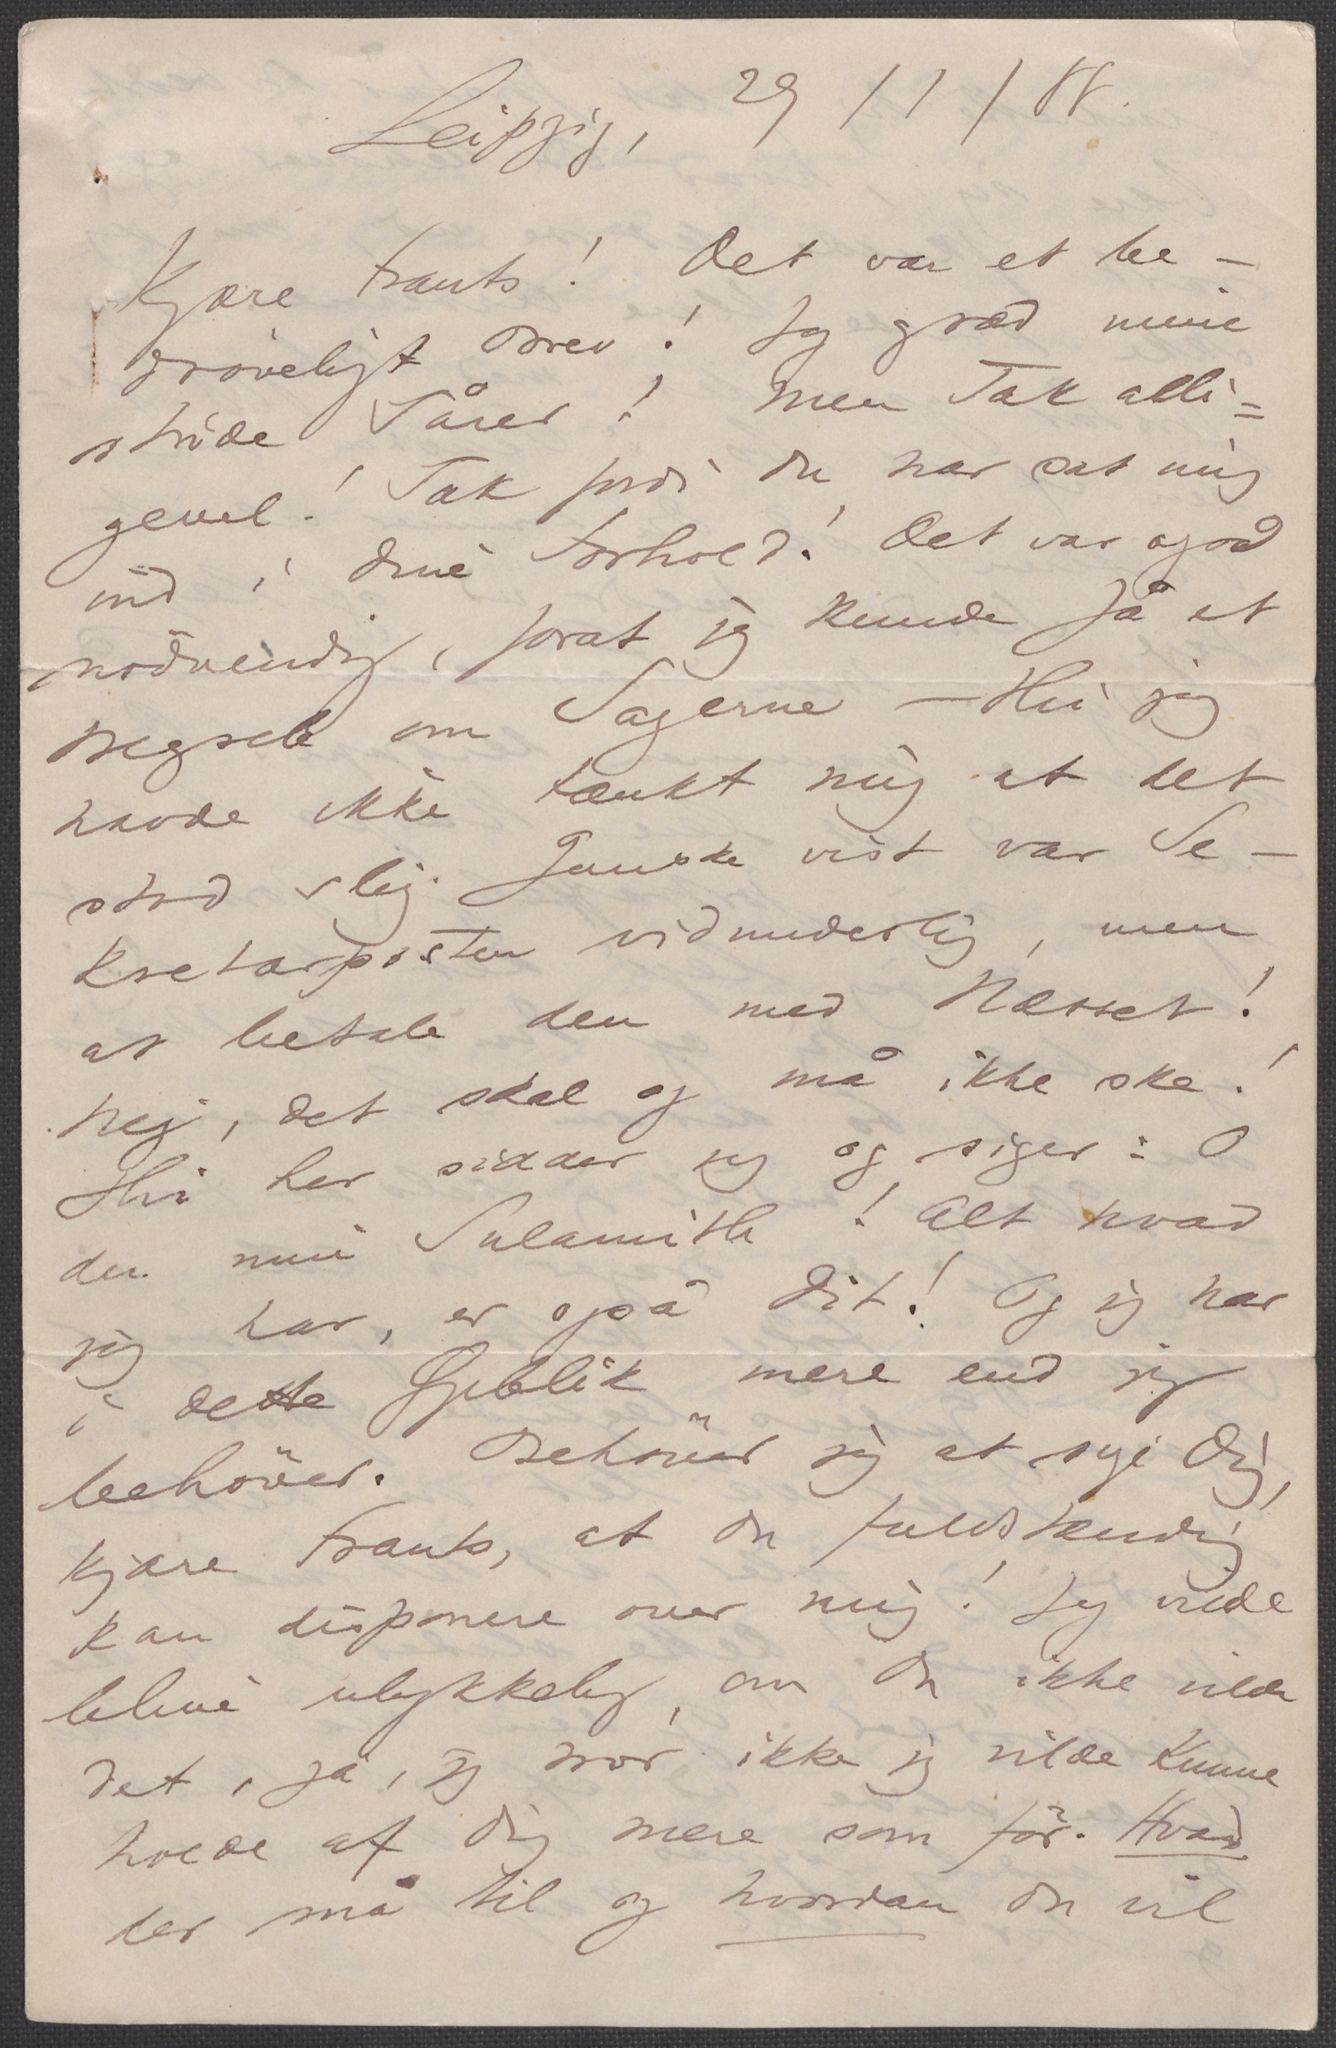 Leipzig, 29/1/88.
Kjære Frants! Det var et be-
drøveligt Brev! Jeg græd mine
stride Tårer! Men Tak alli=
gevel! Tak fordi Du har sat mig
ind i dine Forhold! Det var også
nødvendig, forat jeg kunde få et
Begreb om Sagerne – thi jeg
havde ikke tænkt mig at det
stod slig. Ganske vist var Se-
kretærposten vidunderlig, men
at betale den med Næsset!
Nej, det skal og må ikke ske!
Thi her sidder jeg og siger: O
du min Sulamith! Alt hvad
jeg har, er også Dit! Og jeg har
i dette Øjeblik mere end jeg
behöver. Behöver jeg at sige Dig,
kjære Frants, at Du fuldstændig
kan disponere over mig! Jeg vilde
blive ulykkelig, om Du ikke vilde
det, ja, jeg tror ikke jeg vilde kunne
holde af Dig mere som för. Hvad
der må til og hvordan Du vil